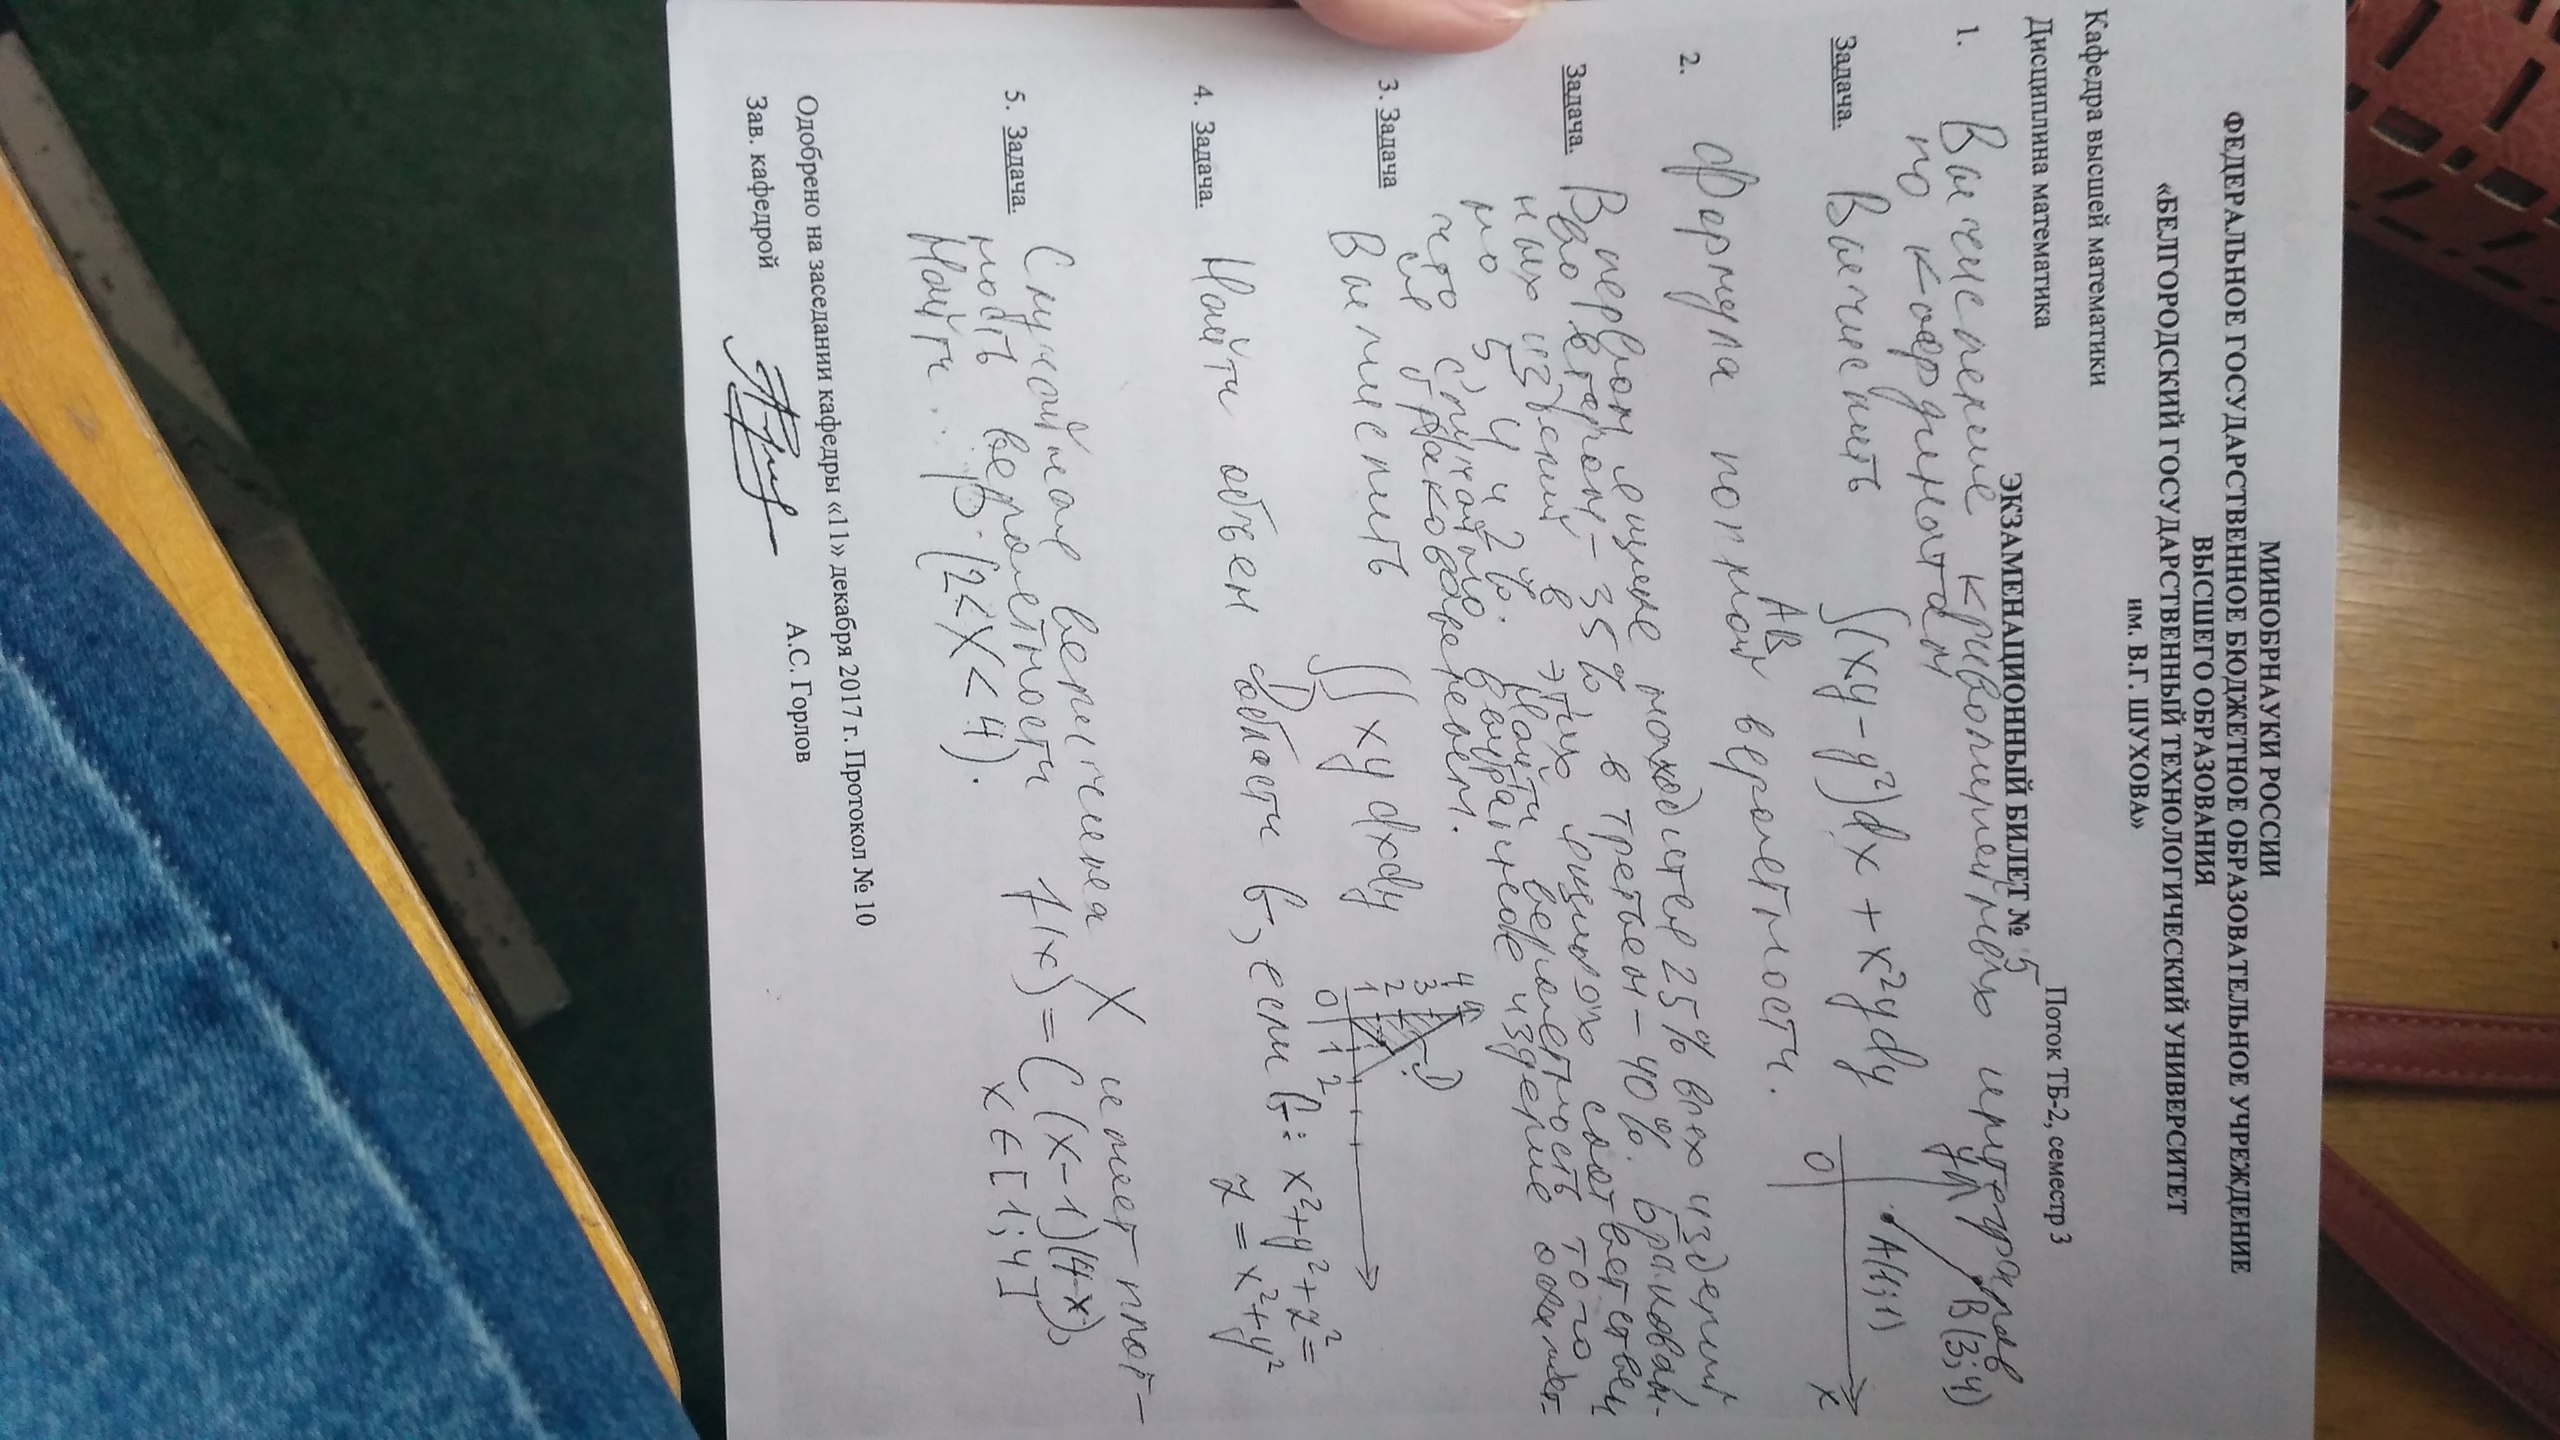 МИНОБРНАУКИ РОССИИ
ФЕДЕРАЛЬНОЕ ГОСУДАРСТВЕННОЕ БЮДЖЕТНОЕ ОБРАЗОВАТЕЛЬНОЕ УЧРЕЖДЕНИЕ
ВЫСШЕГО ОБРАЗОВАНИЯ
«БЕЛГОРОДСКИЙ ГОСУДАРСТВЕННЫЙ ТЕХНОЛОГИЧЕСКИЙ УНИВЕРСИТЕТ
им. В.Г. ШУХОВА»
Кафедра высшей математики
Дисциплина математика Поток ТБ-2, семестр 3
ЭКЗАМЕНАЦИОННЫЙ БИЛЕТ № 5
1. Вычисление криволинейных интегралов
по координатам
Задача. Вычислить ∫(xy-y²)dx + x²ydy
AB
y A(1;1) B(3;4)
0 x
2. Формула полной вероятности.
Задача. В первом ящике находится 25% всех изделий,
во втором - 35% в третьем - 40%. Бракован-
ных изделий в этих ящиках соответствен
но 5, 4 и 2%. Найти вероятность того
что случайно выбранное изделие окажет-
ся бракованным.
3. Задача Вычислить ∬ xy dxdy
D
4 y
3 D
2
1
0 1 2
4. Задача. Найти объем области G, если G: x²+y²+z²=
z = x²+y²
5. Задача. Случайная величина X имеет плот-
ность вероятности f(x) = C(x-1)(4-x),
x∈[1;4]
Найти: P(2<X<4).
Одобрено на заседании кафедры «11» декабря 2017 г. Протокол № 10
Зав. кафедрой А.С. Горлов